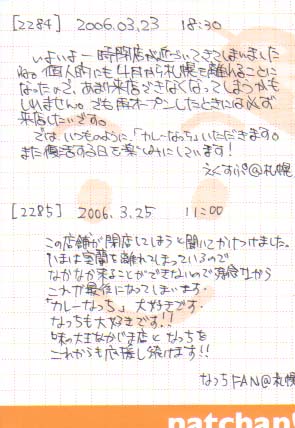 [2284] 2006.03.23 18:30
いよいよ一時閉店が近づいてきてしまいました
ね。個人的にも4月から札幌を離れることに
なったので、あまり来店できなくなってしまうかも
しれません。でも再オープンしたときには必ず
来店したいです。
では、いつものように、「カレーなっち」いただきます。
また復活する日を楽しみにしています！
えくすぷり@札幌
[2285] 2006.3.25 11:00
この店舗が閉店してしまうと聞いてかけつけました。
いまは室蘭を離れてしまっているので
なかなか来ることができないので残念ながら
これが最後になってしまいます。
「カレーなっち」大好きです。
なっちも大好きです!!
味の大王なかじま店となっちを
これからも応援し続けます!!
なっちFAN@札幌
natchan!